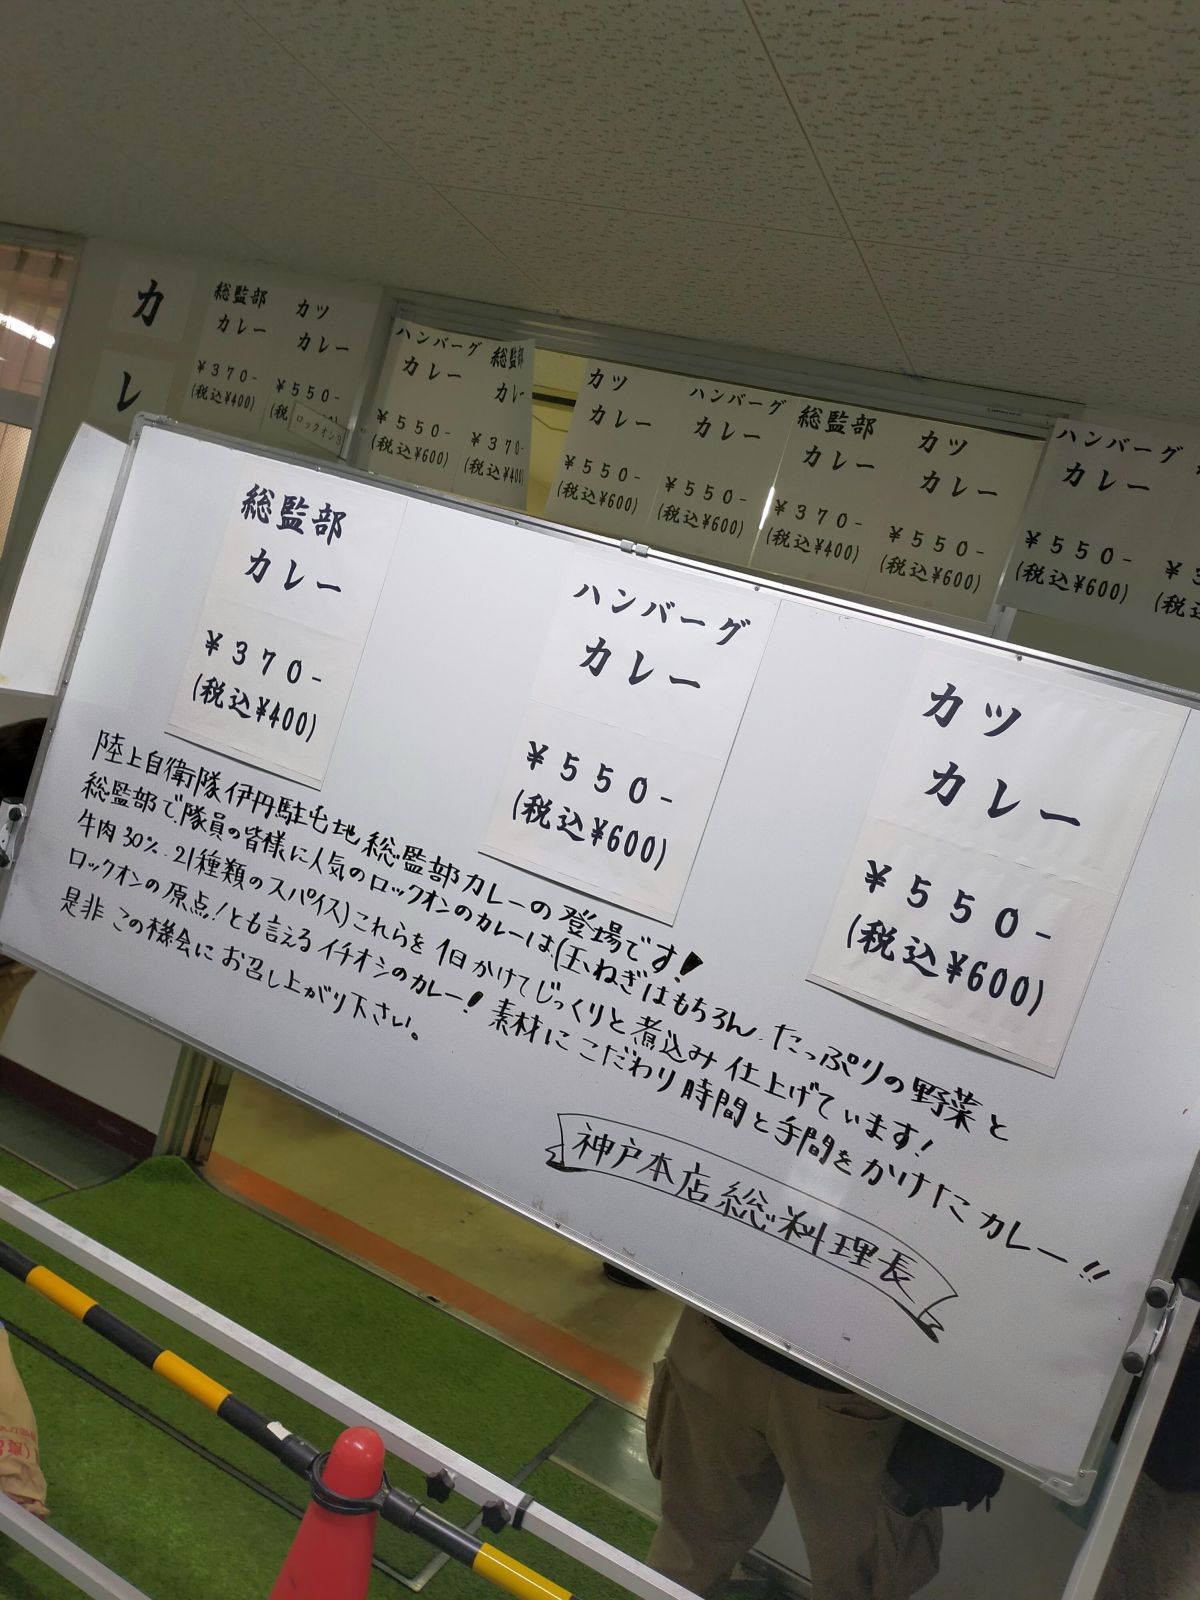 カ
レ
総監部
カレー
¥370-
(税込¥400)
カツ
カレー
¥550-
(税
ロックオン3
ハンバーグ
カレー
¥550-
(税込¥600)
総監部
カレ
¥370-
(税込¥400
カツ
カレー
¥550-
(税込¥600)
ハンバーグ
カレー
¥550-
(税込¥600)
総監部
カレー
¥370-
(税込¥400)
カツ
カレー
¥550-
(税込¥600)
ハンバーグ
カレー
¥550-
(税込¥600)
総監部
カレー
¥370-
(税込¥400)
ハンバーグ
カレー
¥550-
(税込¥600)
カツ
カレー
¥550-
(税込¥600)
陸上自衛隊伊丹駐屯地総監部カレーの登場です!
総監部で、隊員の皆様に人気のロックオンのカレーは、(玉ねぎはもちろん、たっぷりの野菜と
牛肉30%、21種類のスパイス)これらを1日かけてじっくりと煮込み仕上げています!
ロックオンの原点!とも言えるイチオシのカレー!素材にこだわり時間と手間をかけたカレー!!
是非この機会にお召し上がり下さい。
神戸本店総料理長